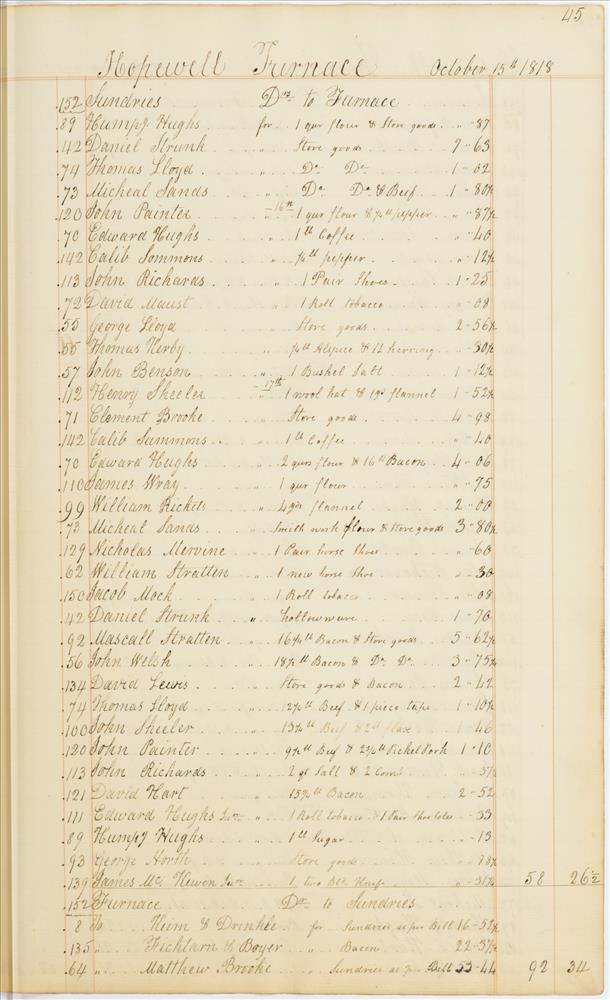 45
Hopewell Furnace October 15th 1818
152 Sundries Drs to Furnace
89 Humpy Hughs for 1 qur flour & Store goods " - 87
42 Daniel Strunk " Store goods 7 - 63
74 Thomas Lloyd " Do Do 1 - 02
73 Micheal Sands " Do Do & Beef 1 - 80½
120 John Painter - 16th 1 qur flour & ¼ lb pepper " - 87½
70 Edward Hughs " 1 lb Coffee " - 40
142 Calib Sommons " ¼ lb pepper " - 12½
113 John Richards " 1 Pair Shoes 1 - 25
72 David Maust " 1 Roll tobacco " - 08
55 George Lloyd Store goods 2 - 56½
55 Thomas Kerby " ¼ lb Alspice & 12 herring " - 50½
57 John Benson " 1 Bushel Salt 1 - 12½
112 Henry Sheeler - 17th 1 wool hat & yd flannel 1 - 52½
71 Clement Brooke " Store goods 4 - 98
142 Calib Summons " 1 lb Coffee " - 40
70 Edward Hughs " 2 qurs flour & 16 lb Bacon 4 - 06
110 James Wray " 1 qur flour " - 75
99 William Rickets " 4 yds flannel 2 - 00
73 Micheal Sands " Smith work flour & Store goods 3 - 80½
129 Nicholas Mervine " 1 Pair horse Shoes " - 60
62 William Stratten " 1 new horse Shoe " - 30
150 Jacob Mock " 1 Roll tobacco " - 08
42 Daniel Strunk " hollowware 1 - 70
92 Mascall Stratten " 16¼ lb Bacon & Store goods 5 - 62½
56 John Welsh " 18½ lb Bacon & Do Do 3 - 75½
134 David Lewis " Store goods & Bacon 2 - 42
74 Thomas Lloyd " 12¼ lb Beef & 1 piece tape 1 - 10½
100 John Sheeler " 13¼ lb Beef & 2 lb flax 1 - 46
120 John Painter " 9½ lb Beef & 2¾ lb Pickel Pork 1 - 10
113 John Richards " 2 qt Salt & 2 Comb " - 37½
121 David Hart " 15¾ lb Bacon 2 - 52
111 Edward Hughs Junr " 1 Roll tobacco & 1 Pair Shoe soles " - 33
89 Humpy Hughs " 1 lb Sugar " - 13
93 George North " Store goods " - 78½
139 James Mc Kewen Junr " 1, two Bld Knife " - 31½ 58 26½
152 Furnace Dr to Sundries
8 To Keim & Drinkle for Sundries as per Bill 16 - 52½
135 " Fichtarn & Boyer " Bacon 22 - 37½
64 " Matthew Brooke " Sundries as per Bill 53 - 44 92 34